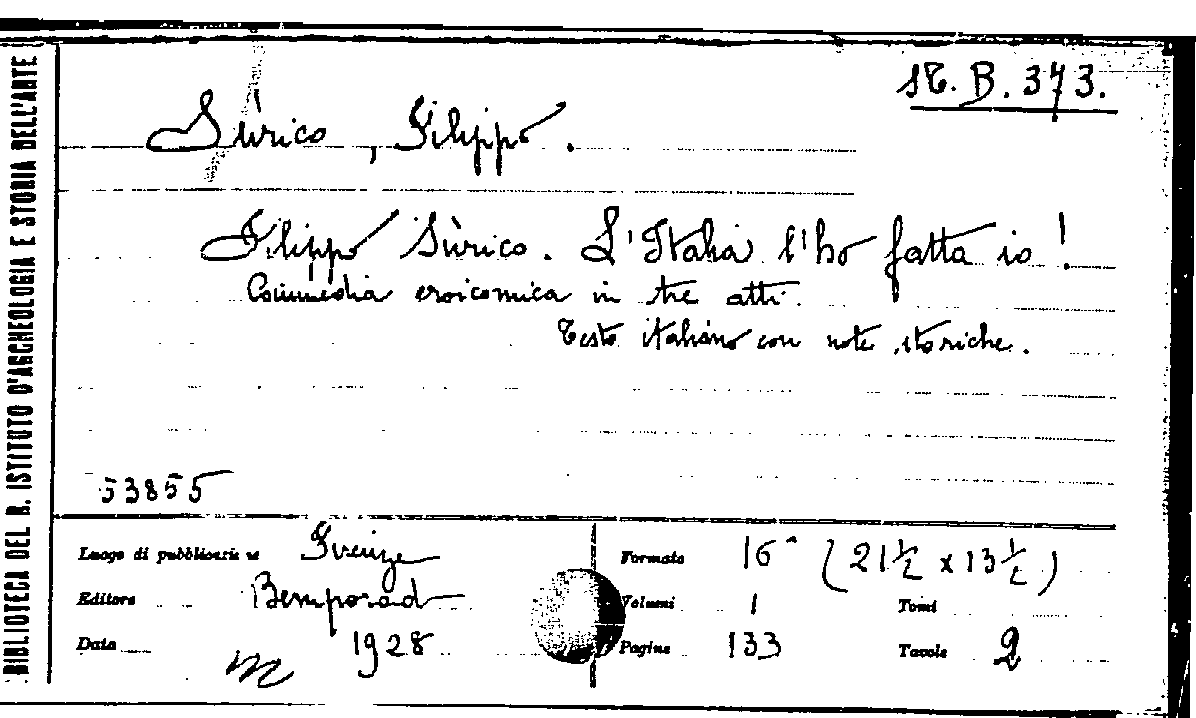 BIBLIOTECA DEL R. ISTITUTO D'ARCHEOLOGIA E STORIA DELL'ARTE
St. B. 373.
Sùrico, Filippo.
Filippo Sùrico. L'Italia l'ho fatta io!
Commedia eroicomica in tre atti.
Testo italiano con note storiche.
53855
Luogo di pubblicazione Firenze
Formato 16° (21½ x 13½)
Editore Bemporad
Volumi 1 Tomi
Data 1928
Pagine 133 Tavole 2
m